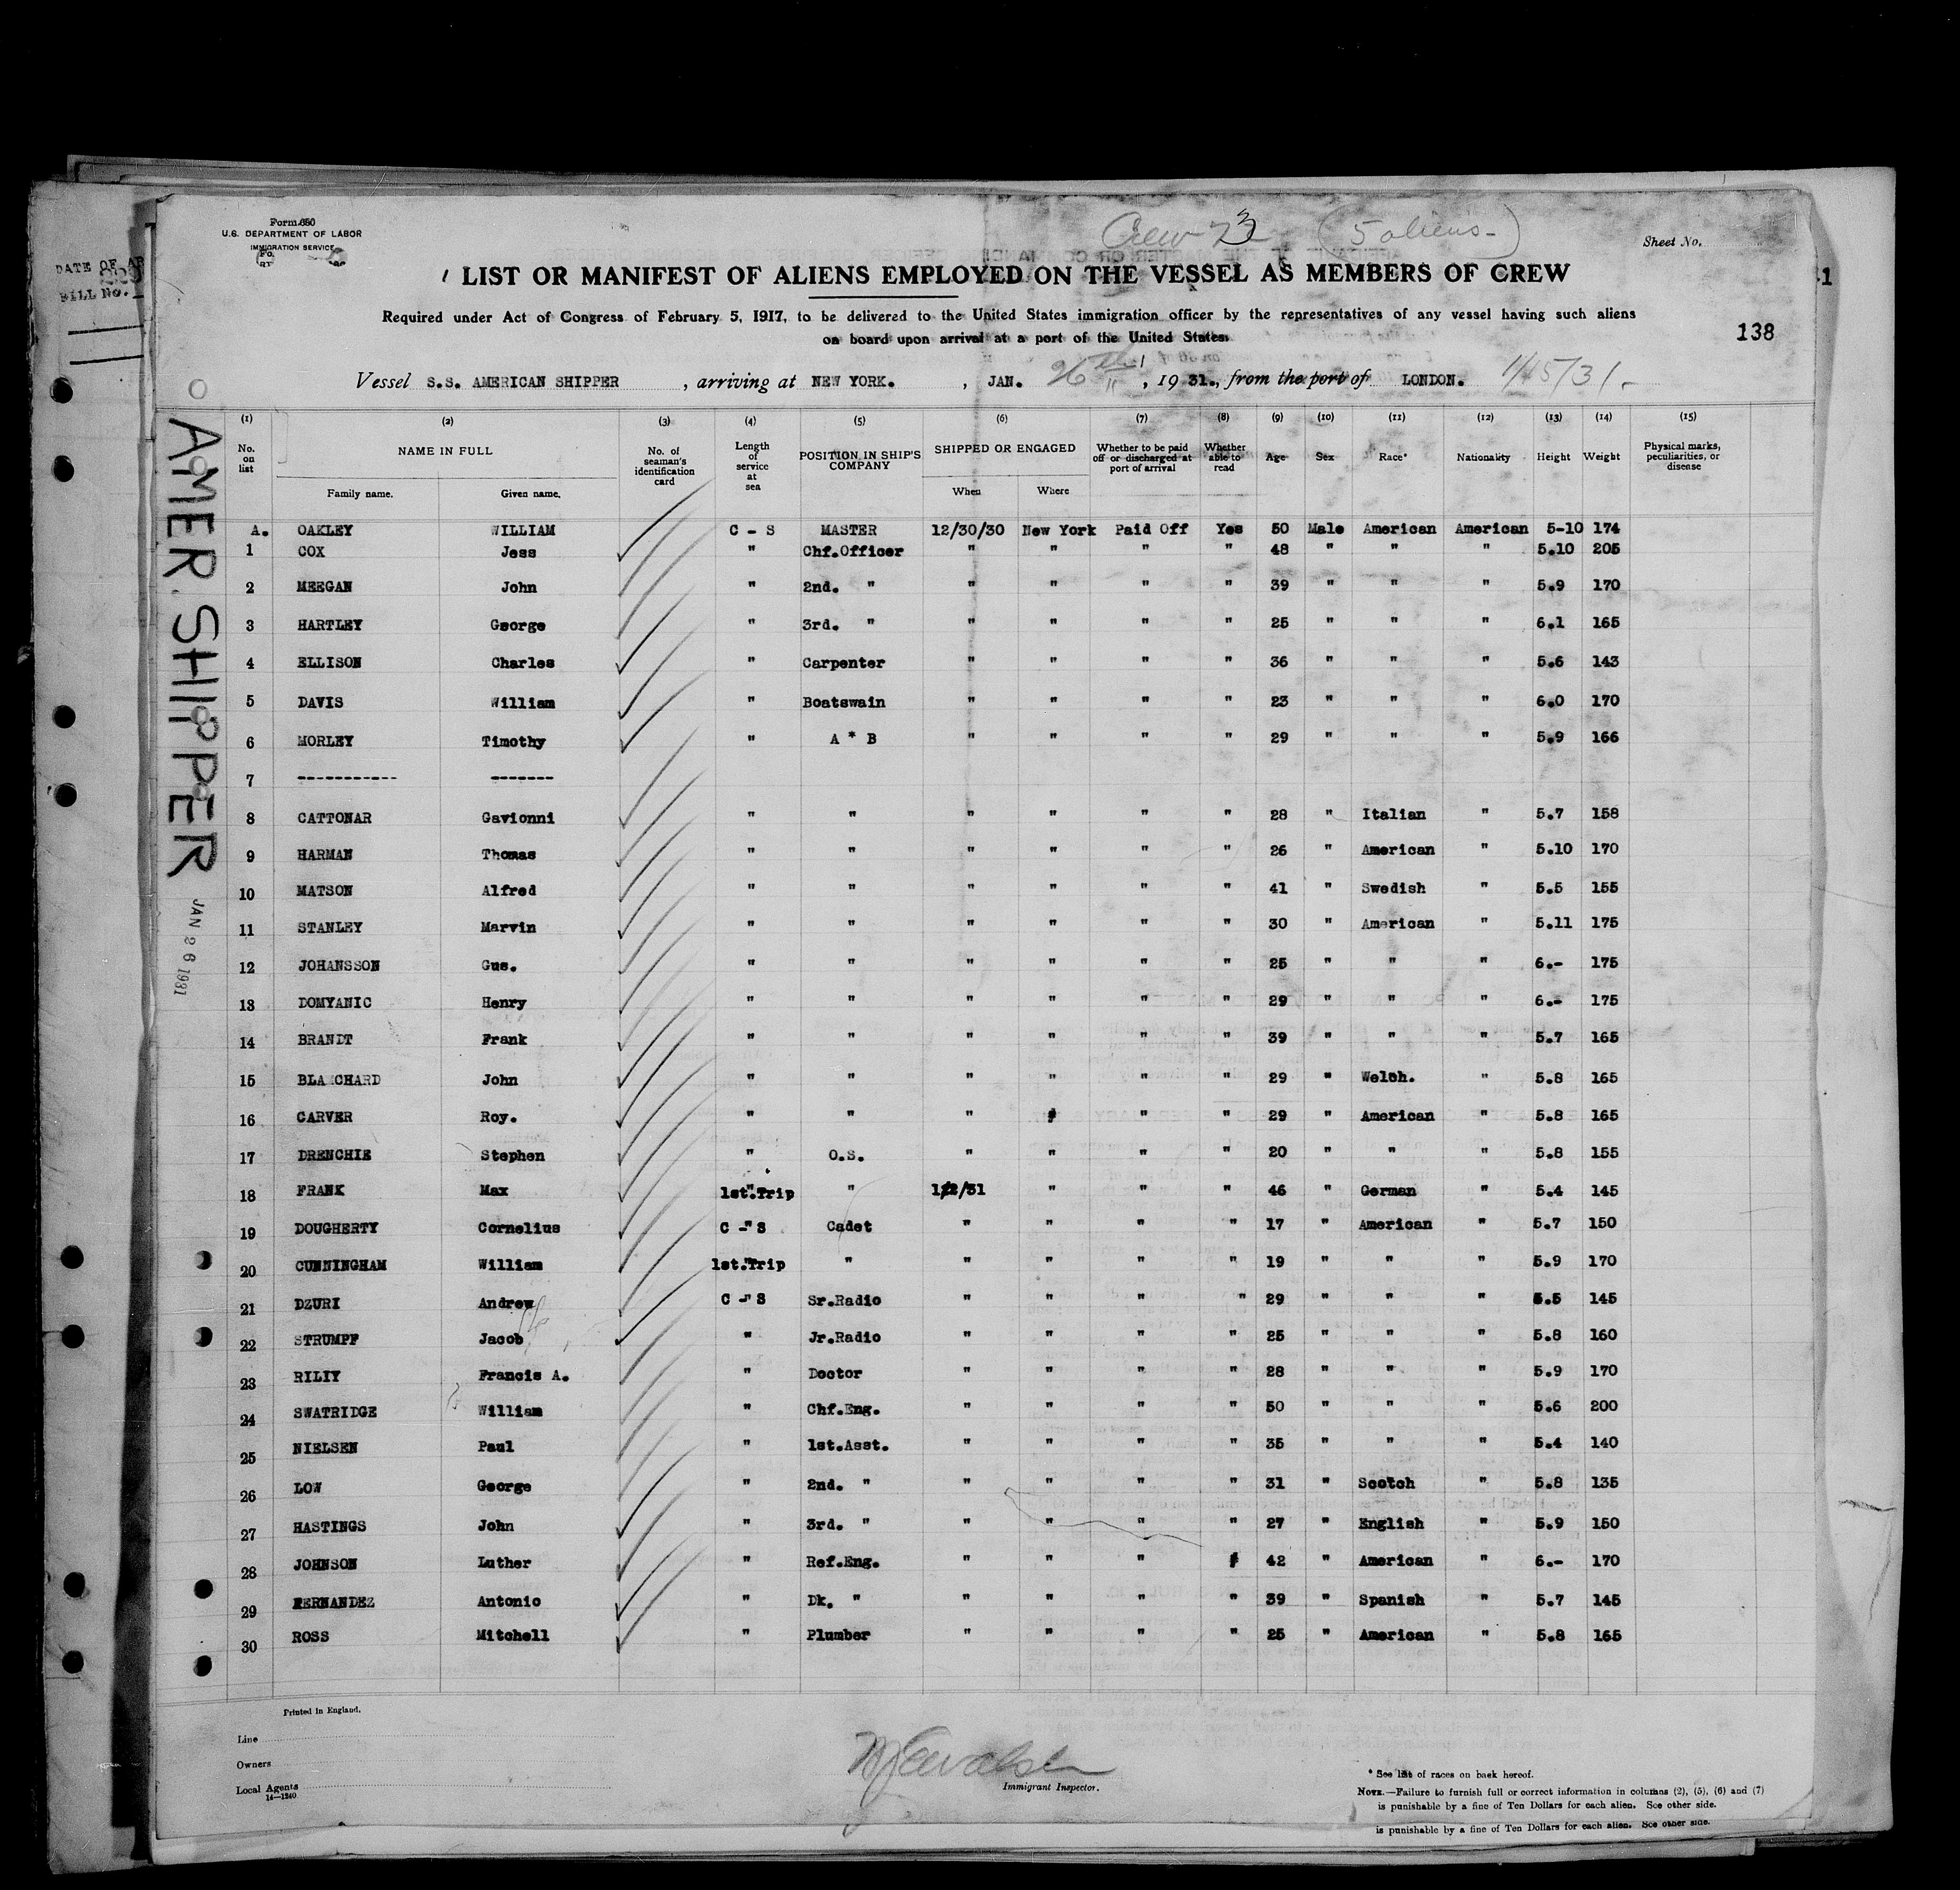 Form 680
U.S. DEPARTMENT OF LABOR
IMMIGRATION SERVICE
DATE OF AR
BILL No.
Crew 73 (5 aliens-)
Sheet No.
1
LIST OR MANIFEST OF ALIENS EMPLOYED ON THE VESSEL AS MEMBERS OF CREW
Required under Act of Congress of February 5, 1917, to be delivered to the United States immigration officer by the representatives of any vessel having such aliens
on board upon arrival at a port of the United States.
138
Vessel S.S. AMERICAN SHIPPER , arriving at NEW YORK. , JAN. 26th , 1931., from the port of LONDON. 1/15/31.-
AMER. SHIPPER
JAN 26 1931
(1) (2) (3) (4) (5) (6) (7) (8) (9) (10) (11) (12) (13) (14) (15)
No. on list NAME IN FULL No. of seaman's identification card Length of service at sea POSITION IN SHIP'S COMPANY SHIPPED OR ENGAGED Whether to be paid off or discharged at port of arrival Whether able to read Age Sex Race* Nationality Height Weight Physical marks, peculiarities, or disease
Family name. Given name. When Where
A. OAKLEY WILLIAM C - S MASTER 12/30/30 New York Paid Off Yes 50 Male American American 5-10 174
1 COX Jess " Chf.Officer " " " " 48 " " " 5.10 205
2 MEEGAN John " 2nd. " " " " " 39 " " " 5.9 170
3 HARTLEY George " 3rd. " " " " " 25 " " " 6.1 165
4 ELLISON Charles " Carpenter " " " " 36 " " " 5.6 143
5 DAVIS William " Boatswain " " " " 23 " " " 6.0 170
6 MORLEY Timothy " A * B " " " " 29 " " " 5.9 166
7 ----------- -------
8 CATTONAR Gavionni " " " " " " 28 " Italian " 5.7 158
9 HARMAN Thomas " " " " " " 26 " American " 5.10 170
10 MATSON Alfred " " " " " " 41 " Swedish " 5.5 155
11 STANLEY Marvin " " " " " " 30 " American " 5.11 175
12 JOHANSSON Gus. " " " " " " 25 " " " 6.- 175
13 DOMYANIC Henry " " " " " " 29 " " " 6.- 175
14 BRANDT Frank " " " " " " 39 " " " 5.7 165
15 BLANCHARD John " " " " " " 29 " Welch. " 5.8 165
16 CARVER Roy. " " " " " " 29 " American " 5.8 165
17 DRENCHIE Stephen " O.S. " " " " 20 " " " 5.8 155
18 FRANK Max 1st.Trip " 1/2/31 " " " 46 " German " 5.4 145
19 DOUGHERTY Cornelius C - S Cadet " " " " 17 " American " 5.7 150
20 CUNNINGHAM William 1st.Trip " " " " " 19 " " " 5.9 170
21 DZURI Andrew C - S Sr.Radio " " " " 29 " " " 5.5 145
22 STRUMPF Jacob " Jr.Radio " " " " 25 " " " 5.8 160
23 RILIY Francis A. " Doctor " " " " 28 " " " 5.9 170
24 SWATRIDGE William " Chf.Eng. " " " " 50 " " " 5.6 200
25 NIELSEN Paul " 1st.Asst. " " " " 35 " " " 5.4 140
26 LOW George " 2nd. " " " " " 31 " Scotch " 5.8 135
27 HASTINGS John " 3rd. " " " " " 27 " English " 5.9 150
28 JOHNSON Luther " Ref.Eng. " " " " 42 " American " 6.- 170
29 FERNANDEZ Antonio " Dk. " " " " " 39 " Spanish " 5.7 145
30 ROSS Mitchell " Plumber " " " " 25 " American " 5.8 165
Printed in England.
Line
Owners
Local Agents
14—1240
Immigrant Inspector.
* See list of races on back hereof.
NOTE.—Failure to furnish full or correct information in columns (2), (5), (6) and (7)
is punishable by a fine of Ten Dollars for each alien. See other side.
is punishable by a fine of Ten Dollars for each alien. See other side.